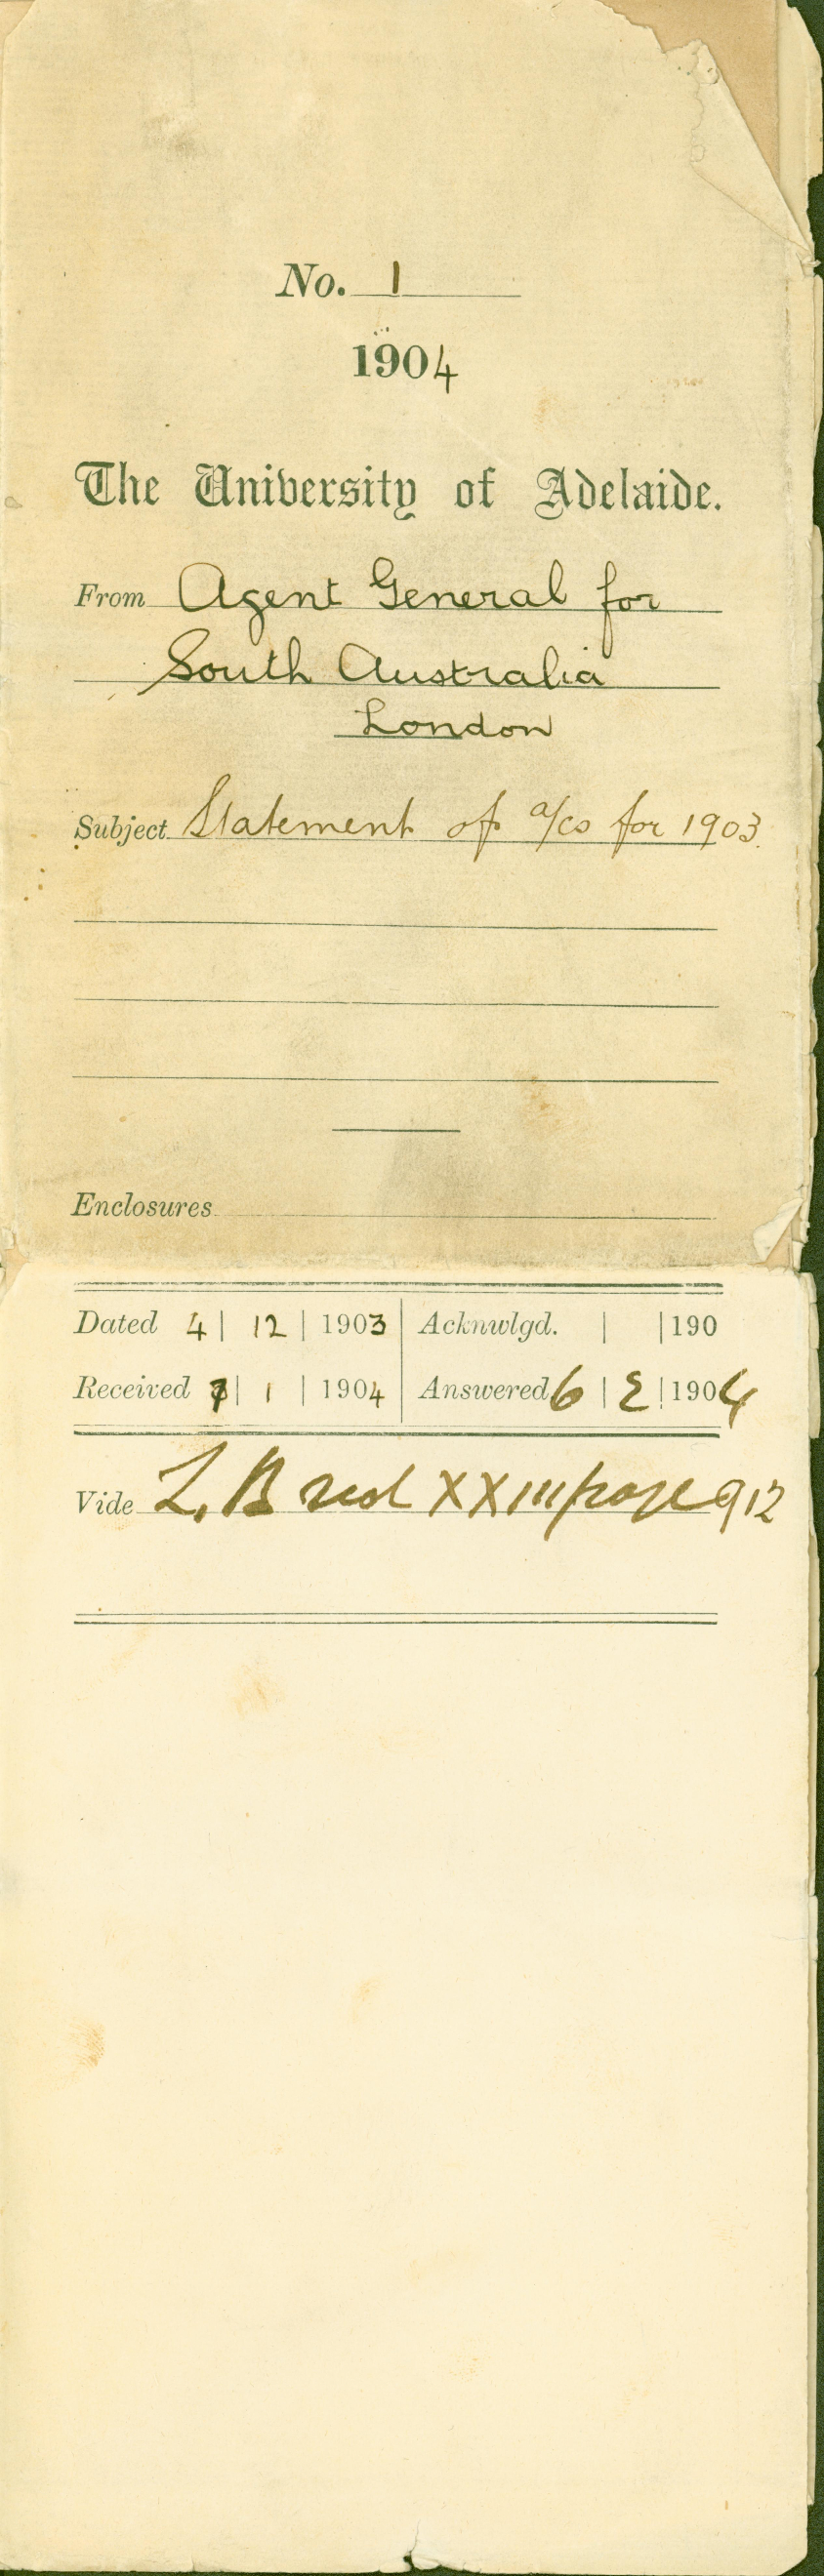 No. 1
1904
The University of Adelaide.
From Agent General for
South Australia
London
Subject Statement of a/cs for 1903.
Enclosures
Dated 4 | 12 | 1903 | Acknwlgd. | | 190
Received 7 | 1 | 1904 | Answered 6 | 2 | 1904
Vide L. B vol XXIII page 912